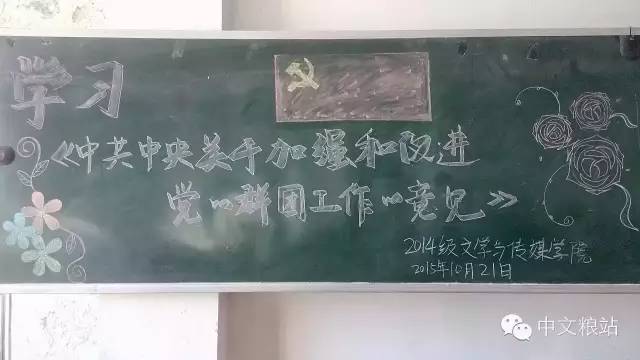 学习
《中共中央关于加强和改进
党的群团工作的意见》
2014级文学与传媒学院
2015年10月21日
中文粮站